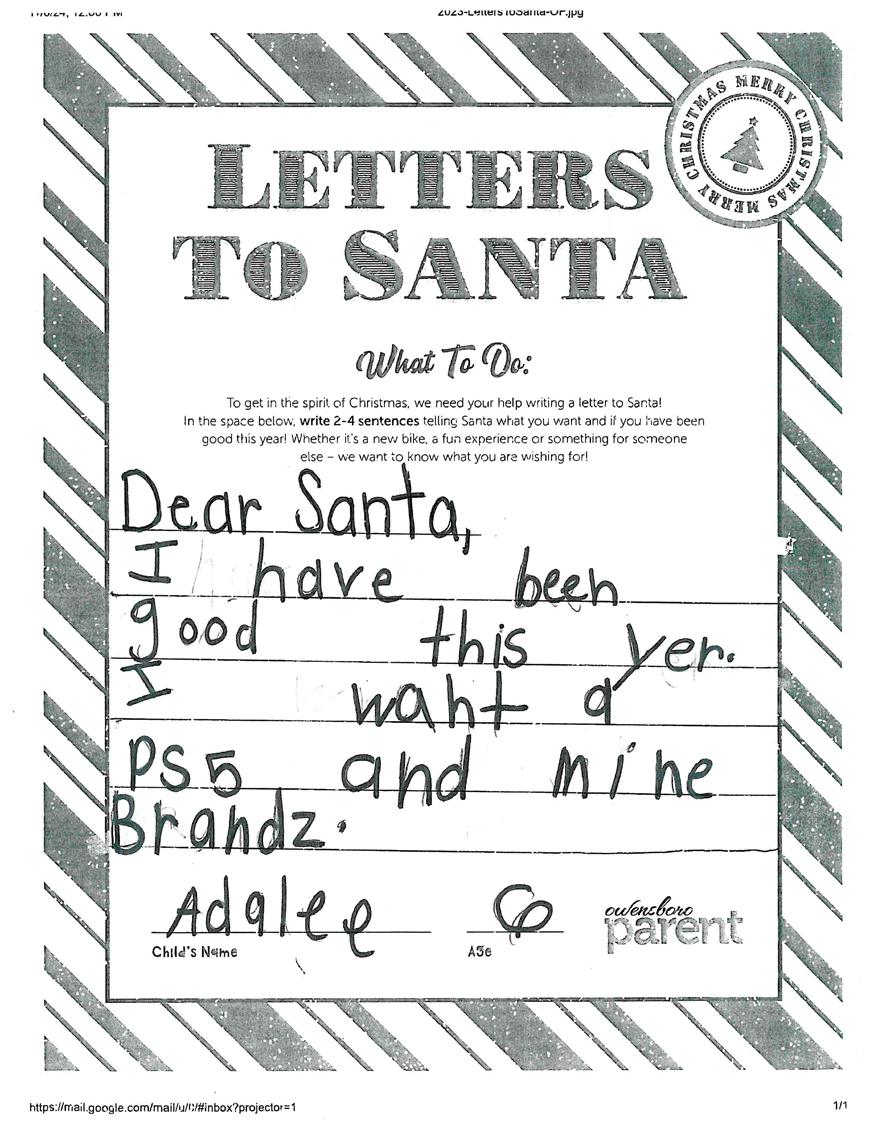 2023-LettersToSanta-OP.jpg
MERRY CHRISTMAS MERRY CHRISTMAS
LETTERS
TO SANTA
What To Do:
To get in the spirit of Christmas, we need your help writing a letter to Santa!
In the space below, write 2-4 sentences telling Santa what you want and if you have been
good this year! Whether it's a new bike, a fun experience or something for someone
else – we want to know what you are wishing for!
Dear Santa,
I have been
good this yer.
I want a
PS5 and mine
Brandz.
Adalee 6
Child's Name Age
owensboro
parent
https://mail.google.com/mail/u/0/#inbox?projector=1 1/1